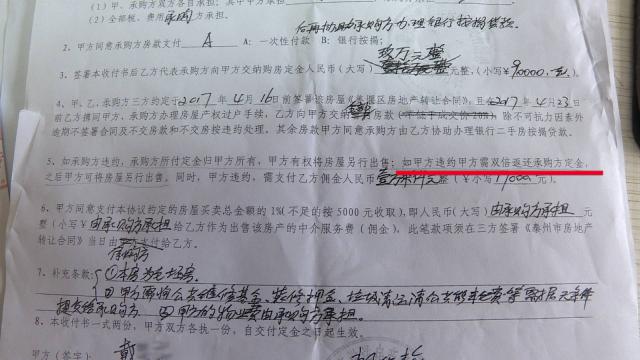 (1) 甲、承购方双方各自承担;其中甲方承担
(2) 全部税、费用承购方承担。 后再协助承购方办理银行按揭贷款
2、甲方同意承购方房款支付 A A:一次性付款 B:银行按揭;
3、签署本收付书后乙方代表承购方向甲方交纳购房定金人民币(大写)玖万元整 元整,(小写¥90000.元)
4、甲、乙、承购方三方约定于2017年4月16日前签署该房屋《姜堰区房地产转让合同》,且在2017年4月23日
前乙方携同甲方、承购方办理房屋产权过户手续,乙方向甲方交纳 房款 除不可抗力因素外
逾期不签署合同及不交房款和不交房按违约处理。其余房款甲方同意承购方由乙方协助办理银行二手房按揭贷款。
5、如承购方违约,承购方所付定金归甲方所有,甲方有权将房屋另行出售;如甲方违约甲方需双倍返还承购方定金,
之后甲方可将房屋另行出售。同时,甲方违约,需支付乙方佣金人民币 元整(¥小写 000元)
6、甲方同意支付本协议约定的房屋买卖总金额的1%(不足的按5000元收取),即人民币(大写)由承购方承担 元
整(小写¥由承购方承担 给乙方作为出售该房产的中介服务费(佣金),此笔款项须在三方签署《泰州市房地产
转让合同》当日由 支付给乙方。
7、补充条款:①本房为毛坯房。
②甲方需将公共维修基金、装修押金、垃圾清运费公共能耗费等票据无条件
提交给承购方 甲方的物业费由承购方承担
8、本收付书一式两份,甲方双方各执一份,自交付定金之日起生效。
甲方(签字):